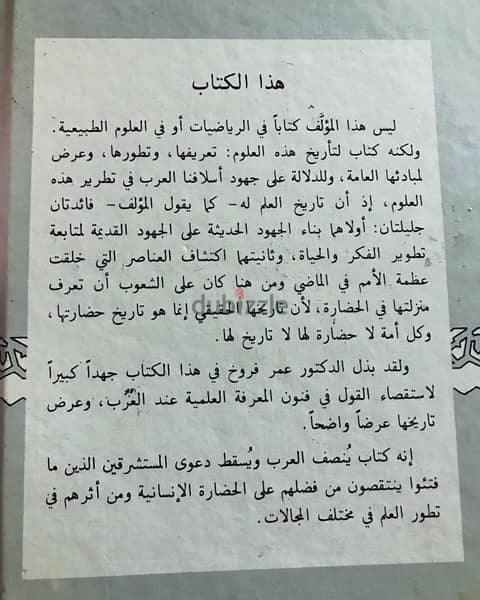 هذا الكتاب
ليس هذا المؤلَّف كتاباً في الرياضيات أو في العلوم الطبيعية.
ولكنه كتاب لتأريخ هذه العلوم: تعريفها، وتطورها، وعرض
لمبادئها العامة، وللدلالة على جهود أسلافنا العرب في تطرير هذه
العلوم، إذ أن تاريخ العلم له- كما يقول المؤلف- فائدتان
جليلتان: أولاهما بناء الجهود الحديثة على الجهود القديمة لمتابعة
تطوير الفكر والحياة، وثانيتهما اكتشاف العناصر التي خلقت
عظمة الأمم في الماضي ومن هنا كان على الشعوب أن تعرف
منزلتها في الحضارة، لأن تاريخها الحقيقي إنما هو تاريخ حضارتها،
dubizzle
وكل أمة لا حضارة لها لا تاريخ لها.
ولقد بذل الدكتور عمر فروخ في هذا الكتاب جهداً كبيراً
لاستقصاء القول في فنون المعرفة العلمية عند العَرب، وعرض
تاريخها عرضاً واضحاً.
إنه كتاب يُنصف العرب ويُسقط دعوى المستشرقين الذين ما
فتئوا ينتقصون من فضلهم على الحضارة الإنسانية ومن أثرهم في
تطور العلم في مختلف المجالات.